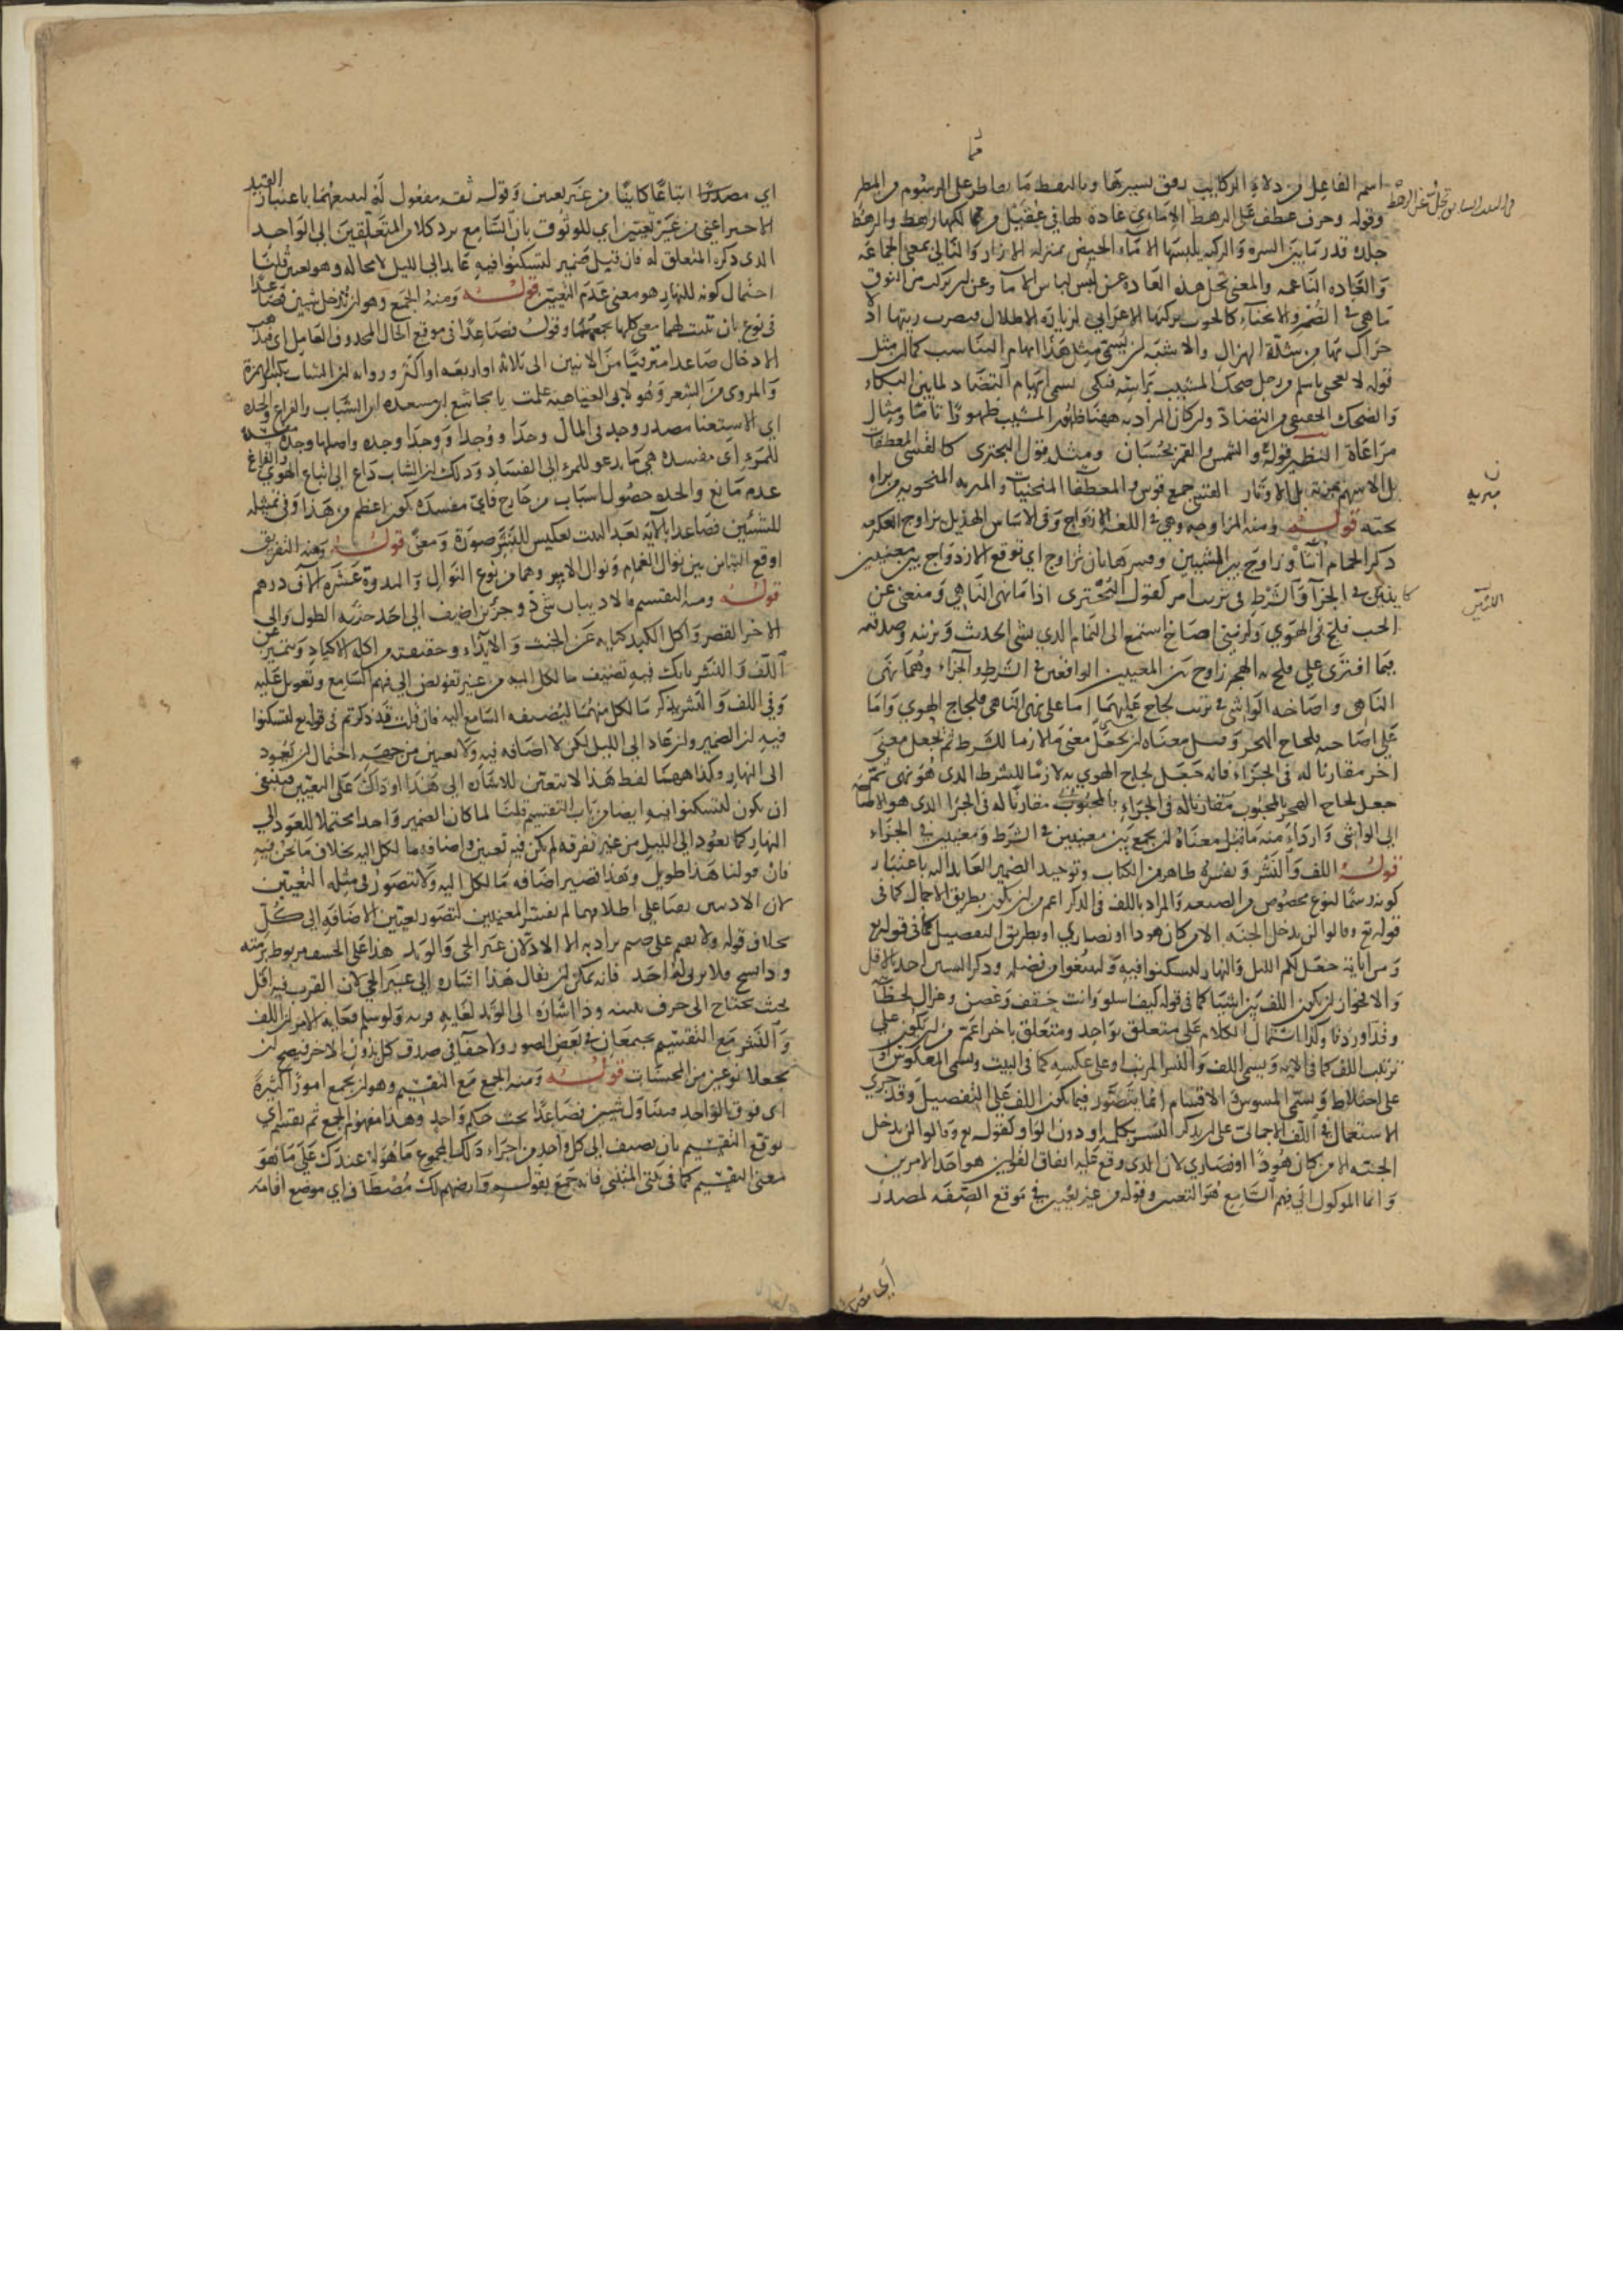 اسم الفاعل من دلاء الركايب برفق بسيرها وبالنقط ما تقاطر على الرسوم من المطر
وقوله وحرف عطف على الرهط
جلد قدر ما بين السرة والركبة يلبسها الاماء الحيض بمنزلة الازار والثاني بمعنى الجماعة
والغادة الناعمة والمعنى تجل هذه الغادة عن لبس لباس الاما وعن ان تركب من النوق
ما هي في الضمر والانحناء كالحرف يركبها الاعرابي لزيارة الاطلال فيضرب ريتها اذ لا
حراك بها من شدة الهزال والاشبه ان يسمى مثل هذا ايهام التناسب كما ان مثل
قوله لا تعجبي يا سلم من رجل ضحك المشيب براسه فبكى يسمى ايهام التضاد لما بين البكاء
والضحك الحقيقي من التضاد ولو كان المراد به ههنا ظهور المشيب ظهورا تاما ومثال
مراعاة النظير قوله والشمس والقمر بحسبان ومثله قول البحتري كالقسي المعطفات
بل الاسهم مبرية بل الاوتار القسي جمع قوس والمعطفات المنحنيات والمبرية المنحوتة من براه
نحته قوله ومنه المزاوجة وهي في اللغة الازدواج وفي الاساس الهذيل يزاوج العكرمة
ذكر الحمام انثاه وزاوج بين الشيئين وفسرها بان تزاوج اي توقع الازدواج بين معنيين
كاينين في الجزآ والشرط في ترتب امر كقول البحتري اذا ما نهى الناهي ومنعني عن
الحب فلج في الهوي ولزمني اصاخ استمع الى النمام الذي يشي الحديث ويزينه وصدقته
فيما افترى علي فلج به الهجر زاوج بين المعنيين الواقعين في الشرط والجزاء وهما نهي
الناهي واصاخه الواشي في ترتب لجاج عليهما اما على نهي الناهي فلجاج الهوي واما
على اصاخته فلجاج الهجر وقيل معناه ان يجعل معنى ملازما للشرط ثم يجعل معنى
اخر مقارنا له في الجزاء فانه جعل لجاج الهوي به لازما للشرط الذي هو نهي
جعل لجاج الهجر بالمحبوب مقارنا له في الجزا الذي هو الاصاخة
الي الواشي واردأ منه ما قيل معناه ان يجمع بين معنيين في الشرط ومعنيين في الجزاء
قوله اللف والنشر وتفسيره ظاهر من الكتاب وتوحيد الضمير العايد اليه باعتبار
كونه رسما لنوع مخصوص من الصنعة والمراد باللف في الذكر اعم من ان يكون بطريق الاجمال كما في
قوله تع وقالوا لن يدخل الجنة الا من كان هودا او نصاري او بطريق التفصيل كما في قوله تع
ومن آياته جعل لكم الليل والنهار لتسكنوا فيه ولتبتغوا من فضله وذكر الشيين احد بالاقل
والا فجواز ان يكون اللف بين اشيا كما في قوله كيف اسلو وانت حقف وغصن وغزال لحظا
وقدا وردفا وكذا اشتمال الكلام على متعلق بواحد ومتعلق باخر اعم من ان يكون على
ترتيب اللف كما في الاية ويسمى اللف والنشر المرتب او على عكسه كما في البيت ويسمى المعكوس او
على اختلاط ويسمى المشوش والاقسام انما يتصور فيما يكون اللف على التفصيل وقد جرى
الاستعمال في اللف الاجمالي على ان يذكر النشر بكلمة او دون الواو كقوله تع وقالوا لن يدخل
الجنة الا من كان هودا او نصاري لان الذي وقع عليه اتفاق القولين هو احد الامرين
وانما الموكول الي فهم السامع هو التعيين وقوله من غير تعيين في موقع الصفة لمصدر
مبرية
اي مصدر
اي مصدرا اتباعا كاينا من غير تعيين وقوله ثقة مفعول له لتتبعهما باعتبار القيد
الاخير اعني من غير تعيين اي للوثوق بان السامع يرد كلا من المتعلقين الى الواحد
الذي ذكره المتعلق له فان قيل ضمير لتسكنوا فيه عايد الى الليل لا محالة وهو تعيين قلنا
احتمال كونه للنهار هو معنى عدم التعيين قوله ومنه الجمع وهو ان تدخل شيين فصاعدا
في نوع بان تثبت لهما معنى كلها يجمعهما وقوله فصاعدا في موقع الحال المحذوف العامل اي فذهب
الادخال صاعدا مترقيا من الاثنين الى ثلاثة او اربعة او اكثر ورواية ان الشباب بكسر الهمزة
والمروي من الشعر وهو لابي العتاهية علمت يا مجاشع بن مسعدة ان الشباب والفراغ والجدة
اي الاستغنا مصدر وجد في المال وجدا ووجدا ووجدا وجدة واصلها وجدة مفسدة
للمرء اي مفسدة هي ما يدعو للمرء الى الفساد وذلك ان الشاب داع الى اتباع الهوي والفراغ
عدم مانع والجدة حصول اسباب من خارج فايّ مفسدة يكون اعظم من هذا وفي تمثيله
للشيئين فصاعدا بالآية بعد البيت تعكيس للنشر صورة ومعنى قوله ومنه التفريق
اوقع التباين بين نوال الغمام ونوال الامير وهما من نوع النوال والبدرة عشرة الآف درهم
قوله ومنه التقسيم
الاخر القصر واكل الكبد كناية عن الخبث والايذاء وحقيقته من اكلة الاكباد وتتميز عن
اللف والنشر بانك فيه تضيف ما لكل اليه من غير تفويض الى فهم السامع وتعويل عليه
وفي اللف والنشر يذكر ما لكل منهما ليضيفه السامع اليه فان قلت قد ذكرتم في قوله تع لتسكنوا
فيه ان الضمير وان عاد الى الليل لكن لا اضافة فيه ولا تعيين من جهة احتمال ان يعود
الى النهار وكذا ههنا لفظ هذا لا يتعين للاشارة الى هذا او ذاك على التعيين فينبغي
ان يكون لتسكنوا فيه ايضا من باب التقسيم قلنا لما كان الضمير واحدا محتملا للعود الي
النهار كما يعود الى الليل من غير تفرقة لم يكن فيه تعيين واضافة ما لكل اليه بخلاف ما نحن فيه
فان قولنا هذا طويل وهذا قصير اضافة ما لكل اليه ولا يتصور في مثله التعيين
بخلاف قوله ولا يقيم على ضيم يراد به الا الاذلان عير الحي والوتد هذا على الخسف مربوط برمته
وذا يشج فلا يرثي له احد فانه يمكن ان يقال هذا اشارة الى عير الحي لان القرب فيه اقل
بحيث يحتاج الى حرف تنبيه وذا اشارة الى الوتد لغاية قربه ولو سلم فغاية الامر ان اللف
والنشر مع التقسيم يجتمعان في بعض الصور ولا خفآ في صدق كل بدون الاخر فيصح ان
يجعلا نوعين من المحسنات قوله ومنه الجمع مع التقسيم وهو ان يجمع امورا كثيرة
اي فوق الواحد فيتناول شيين فصاعدا تحت حكم واحد وهذا مفهوم الجمع ثم يقسم اي
يوقع التقسيم بان يضيف الى كل واحد من اجزاء ذلك المجموع ما هو له عندك على ما هو
معنى التقسيم كما في بيتي المتنبي فانه جمع بقوله وارضهم لك مصطاف اي موضع اقامة